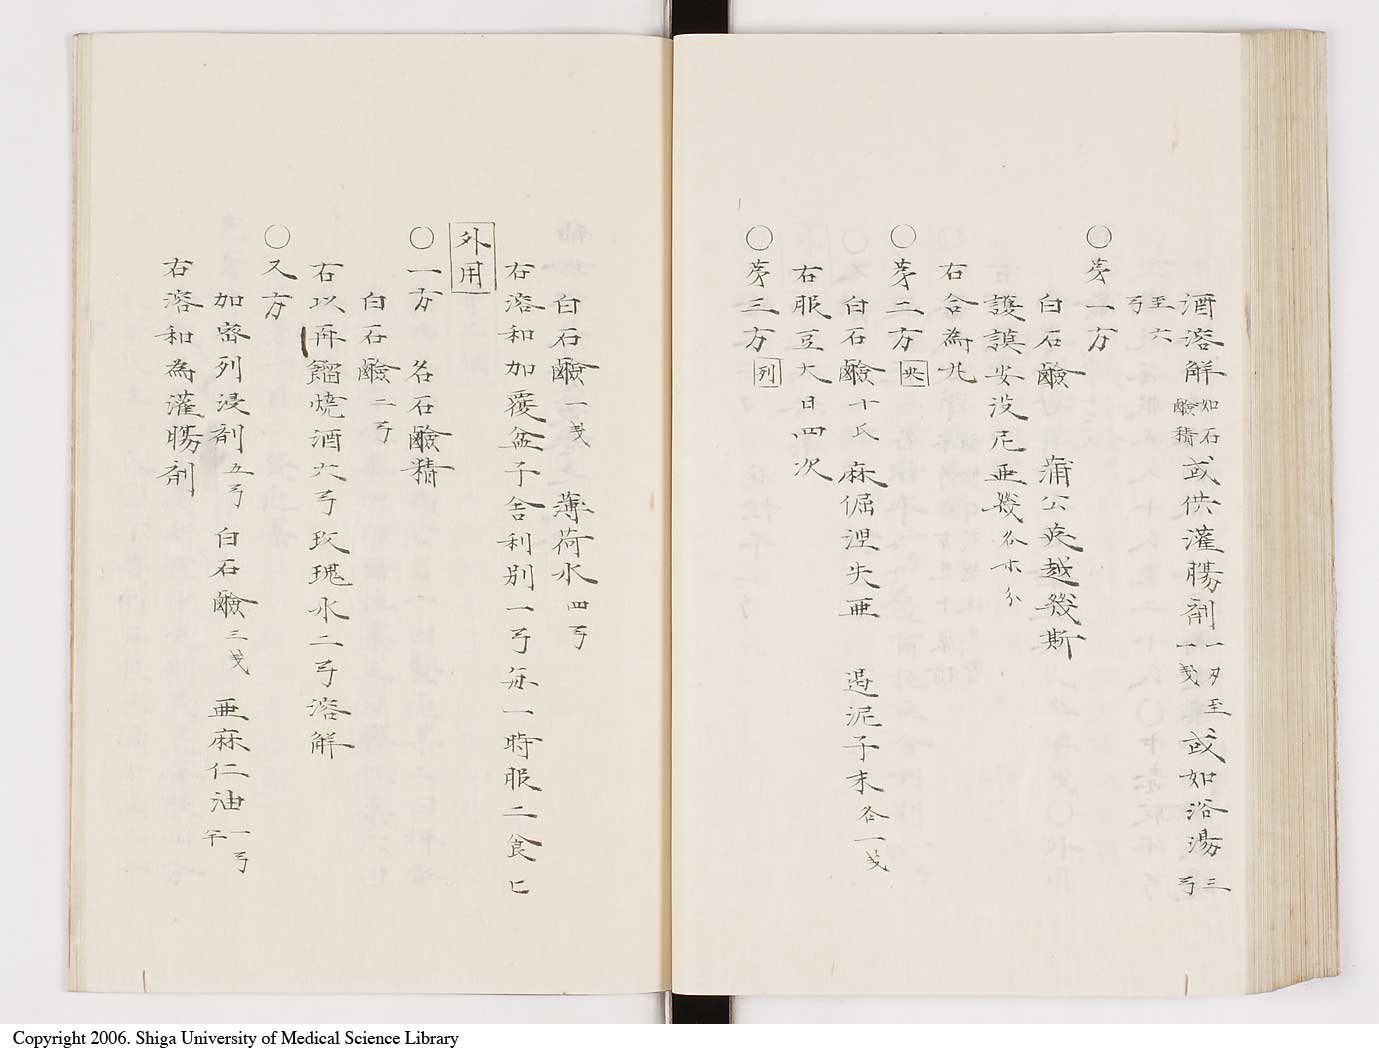 酒溶解如石鹸精或供灌腸剤一夕至一戔或如浴湯三弓
至六弓
〇苐一方
白石鹸 蒲公英越幾斯
護謨安没尼亜幾各等分
右合為丸
〇苐二方 㳄
白石鹸十氏 麻倔涅失亜 遏泥子末各一戔
右服豆大日四次
〇苐三方 列
白石鹸一戔 薄荷水四弓
右溶和加覆盆子舎利別一弓毎一時服二食匕
外用
〇一方 名石鹸精
白石鹸二弓
右以再餾焼酒六弓玫瑰水二弓溶解
〇又方
加密列浸剤五弓 白石鹸三戔 亜麻仁油一弓半
右溶和為灌腸剤
Copyright 2006. Shiga University of Medical Science Library